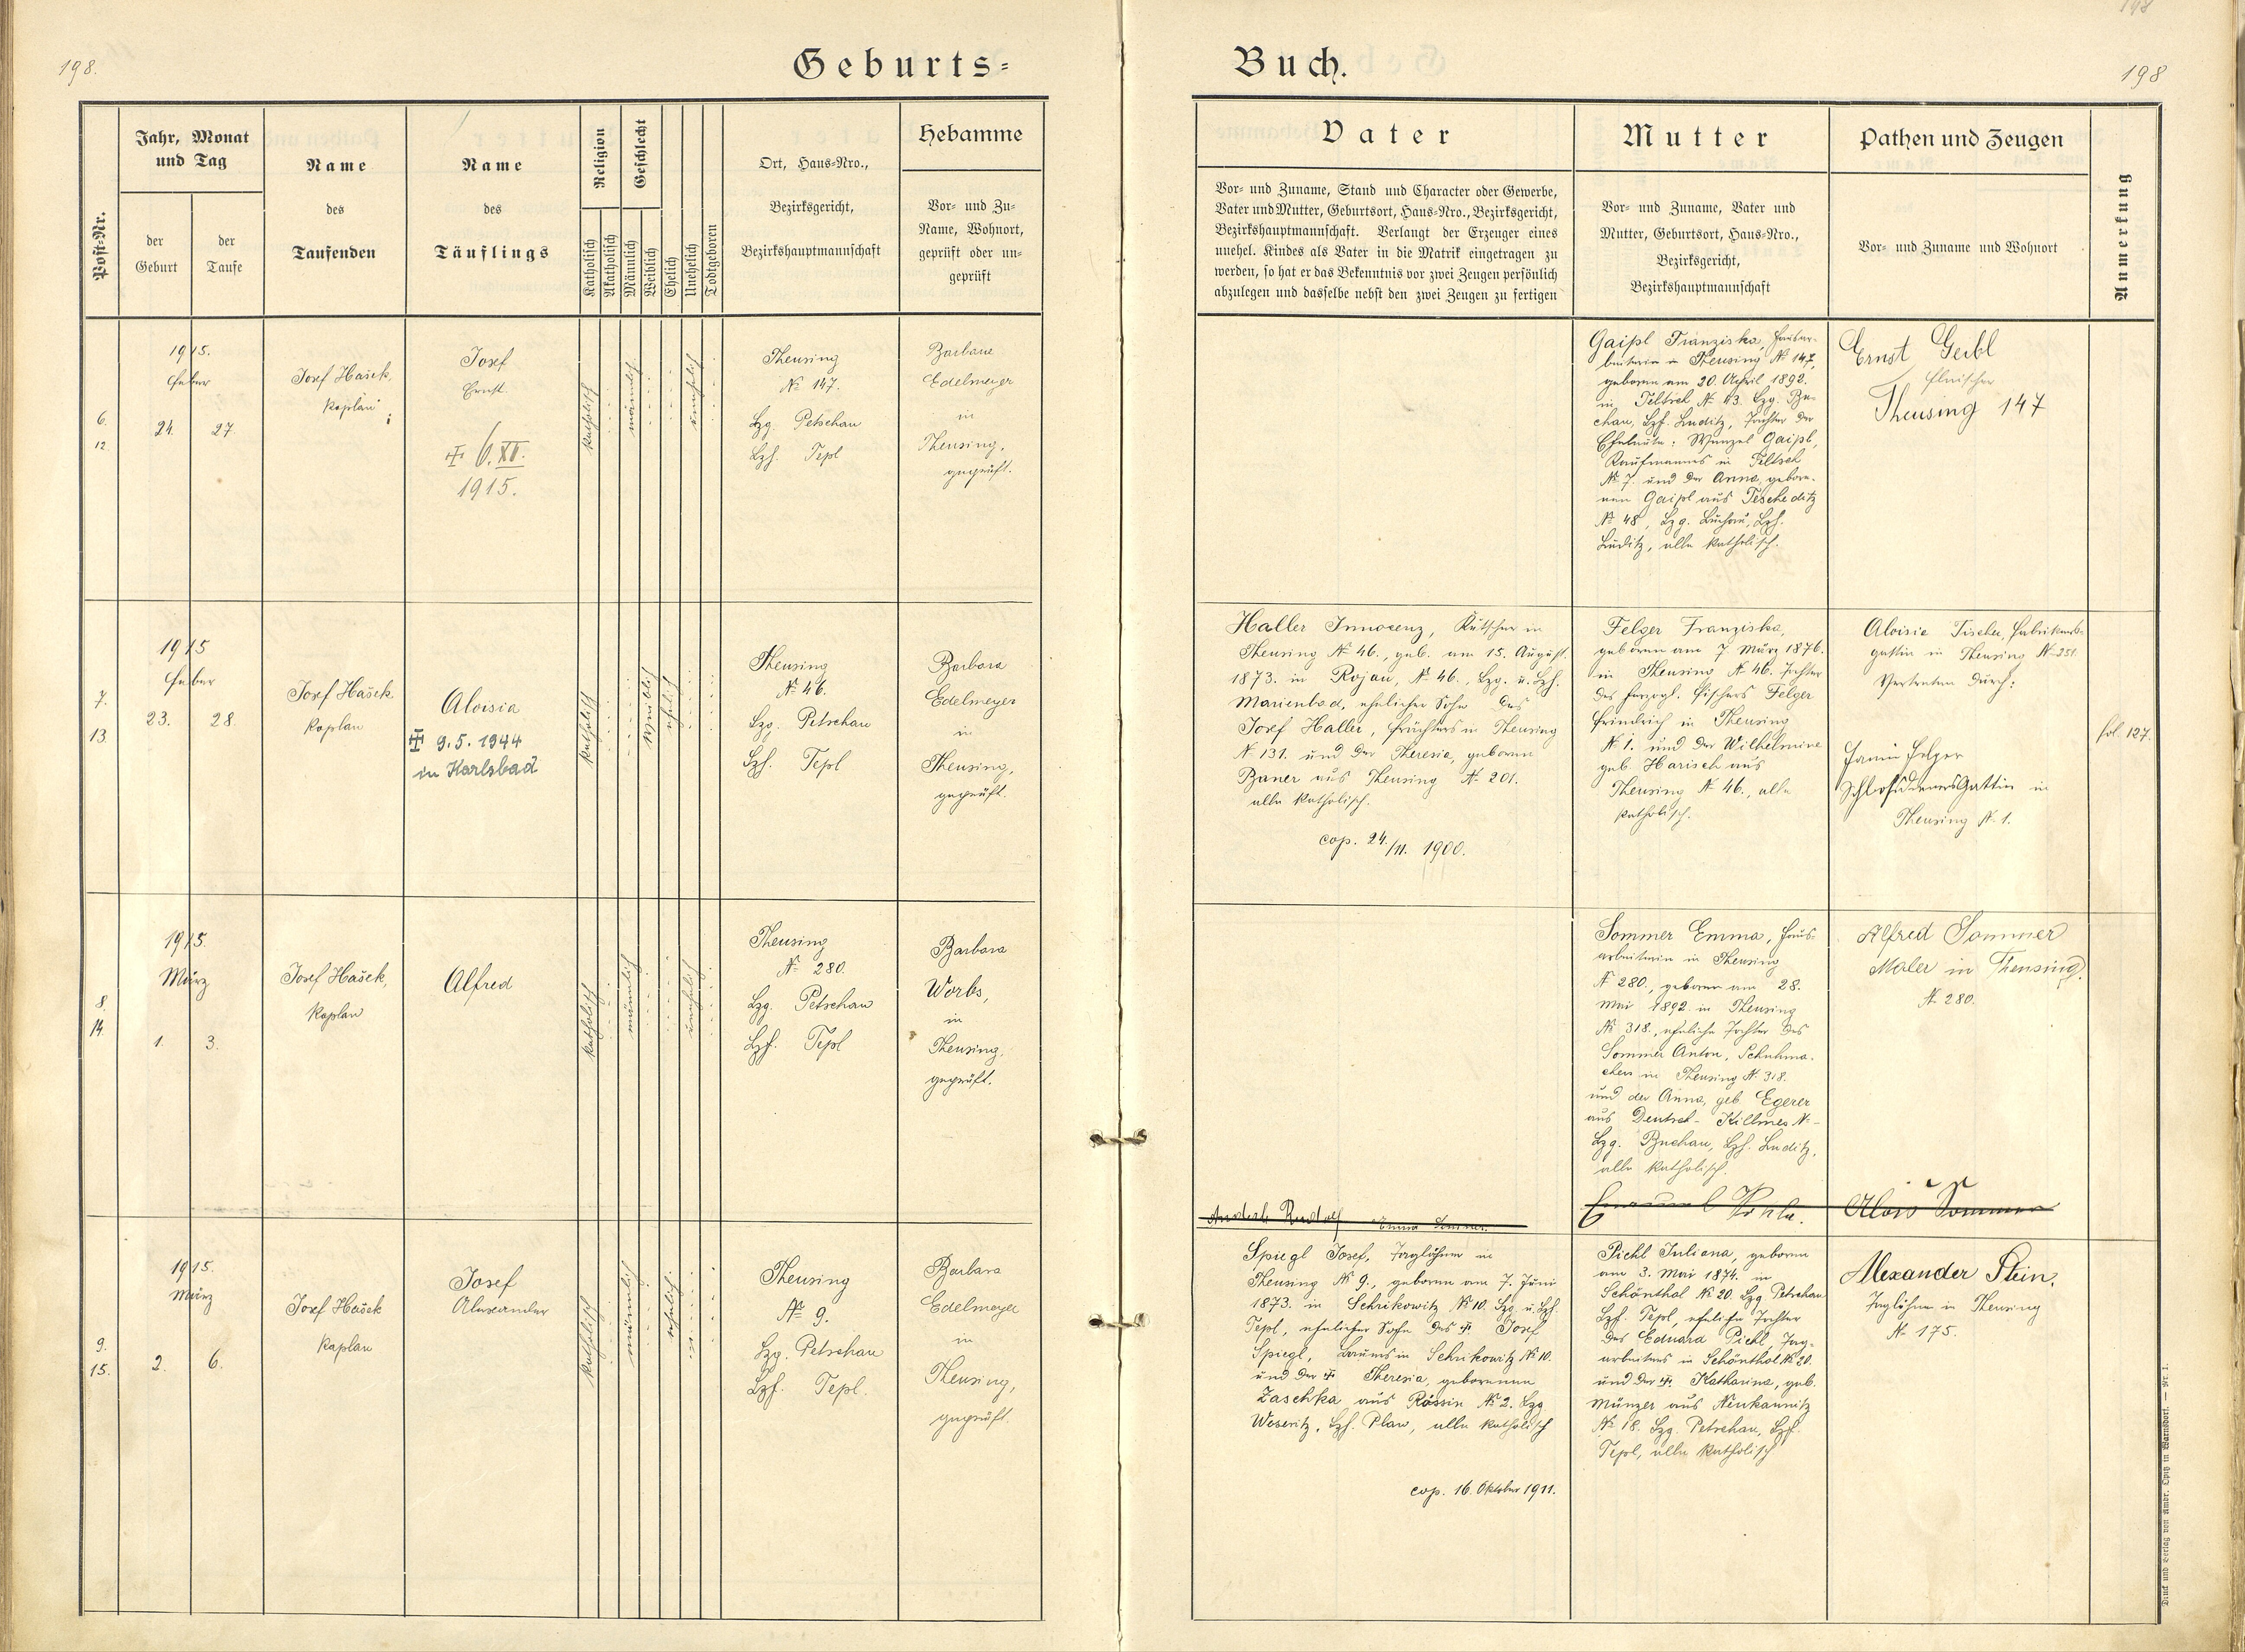 198.
Geburts=
Jahr, Monat
und Tag
Post=Nr.
der
Geburt
der
Taufe
Name
des
Taufenden
Name
des
Täuflings
Religion
Geschlecht
Katholisch
Akatholisch
Männlich
Weiblich
Ehelich
Unehelich
Todtgeboren
Ort, Haus=Nro.,
Bezirksgericht,
Bezirkshauptmannschaft
Hebamme
Vor= und Zu=
Name, Wohnort,
geprüft oder un=
geprüft
6.
12.
1915.
Feber
24. 27.
Josef Hašek,
Kaplan
Josef
Ernst.
6. XI.
1915.
katholisch
männlich
unehelich
Theusing
№ 147.
Bzg. Petschau
Bzh. Tepl
Barbara
Edelmeyer
in
Theusing,
geprüft.
7.
13.
1915
Feber
23. 28
Josef Hašek
Kaplan
Aloisia
9.5.1944
in Karlsbad
katholisch
weiblich
ehelich
Theusing
№ 46.
Bzg. Petschau
Bzh. Tepl
Barbara
Edelmeyer
in
Theusing,
geprüft.
8.
14.
1915.
März
1. 3.
Josef Hašek,
Kaplan
Alfred
katholisch
männlich
unehelich
Theusing
№ 280.
Bzg. Petschau
Bzh. Tepl
Barbara
Worbs,
in
Theusing,
geprüft.
9.
15.
1915.
März
2. 6.
Josef Hašek
Kaplan
Josef
Alexander
katholisch
männlich
ehelich
Theusing
№ 9.
Bzg. Petschau
Bzh. Tepl.
Barbara
Edelmeyer
in
Theusing,
geprüft.
198
Buch.
198
Vater
Vor= und Zuname, Stand und Character oder Gewerbe,
Vater und Mutter, Geburtsort, Haus=Nro., Bezirksgericht,
Bezirkshauptmannschaft. Verlangt der Erzeuger eines
unehel. Kindes als Vater in die Matrik eingetragen zu
werden, so hat er das Bekenntnis vor zwei Zeugen persönlich
abzulegen und dasselbe nebst den zwei Zeugen zu fertigen
Mutter
Vor= und Zuname, Vater und
Mutter, Geburtsort, Haus=Nro.,
Bezirksgericht,
Bezirkshauptmannschaft
Pathen und Zeugen
Vor= und Zuname und Wohnort
Anmerkung
Gaipl Franziska, Hausar-
beiterin in Theusing № 147,
geboren am 20. April 1892.
in Teltsch № 43. Bzg. Bu-
chau, Bzh. Luditz, Tochter der
Eheleute: Wenzel Gaipl,
Kaufmannes in Teltsch
№ 7. und der Anna, gebore-
nen Gaipl aus Tescheditz
№ 48, Bzg. Buchau, Bzh.
Luditz, alle katholisch.
Ernst Geibl
Fleischer
Theusing 147
Haller Innocenz, Kutscher in
Theusing № 46., geb. am 15. August
1873. in Rojau, № 46., Bzg. u. Bzh.
Marienbad, ehelicher Sohn des
Josef Haller, Frächters in Theusing
№ 131. und der Theresia, geboren
Baner aus Theusing № 201.
alle katholisch.
cop. 24./11. 1900.
Felger Franziska,
geboren am 7 März 1876.
in Theusing № 46. Tochter
des herzogl. Fischers Felger
Friedrich in Theusing
№ 1. und der Wilhelmine
geb. Harisch aus
Theusing № 46., alle
katholisch.
Aloisie Fischer, Fabrikants-
gattin in Theusing № 251.
Vertreten durch:
Felger
Schloßdieners Gattin in
Theusing № 1.
fol. 127.
Sommer Emma, Haus-
arbeiterin in Theusing
№ 280., geboren am 28.
Mai 1892. in Theusing
№ 318., eheliche Tochter des
Sommer Anton, Schuhma-
chers in Theusing № 318.
und der Anna, geb. Egerer
aus Deutsch-Killmes №-
Bzg. Buchau, Bzh. Luditz,
alle katholisch.
Alfred Sommer
Maler in Theusing
№ 280.
Rudolf Emma Sommer
Emanuel
Alois Sommer
Spiegl Josef, Taglöhner in
Theusing № 9., geboren am 7. Juni
1873. in Schrikowitz № 10. Bzg. u. Bzh.
Tepl, ehelicher Sohn des Josef
Spiegl, in Schrikowitz № 10.
und der Theresia, geborenen
Zaschka aus Rössin № 2. Bzg.
Weseritz, Bzh. Plan, alle katholisch
cop. 16. Oktober 1911.
Pichl Juliana, geboren
am 3. Mai 1874. in
Schönthal № 20. Bzg. Petschau
Bzh. Tepl, eheliche Tochter
des Eduard Pichl, Tag-
arbeiters in Schönthal № 20.
und der Katharina, geb.
Münzer aus Neukaunitz
№ 18. Bzg. Petschau, Bzh.
Tepl, alle katholisch
Alexander Stein,
Taglöhner in Theusing
№ 175.
Druck und Verlag von Ambr. Opitz in Warnsdorf. — Nr. 1.